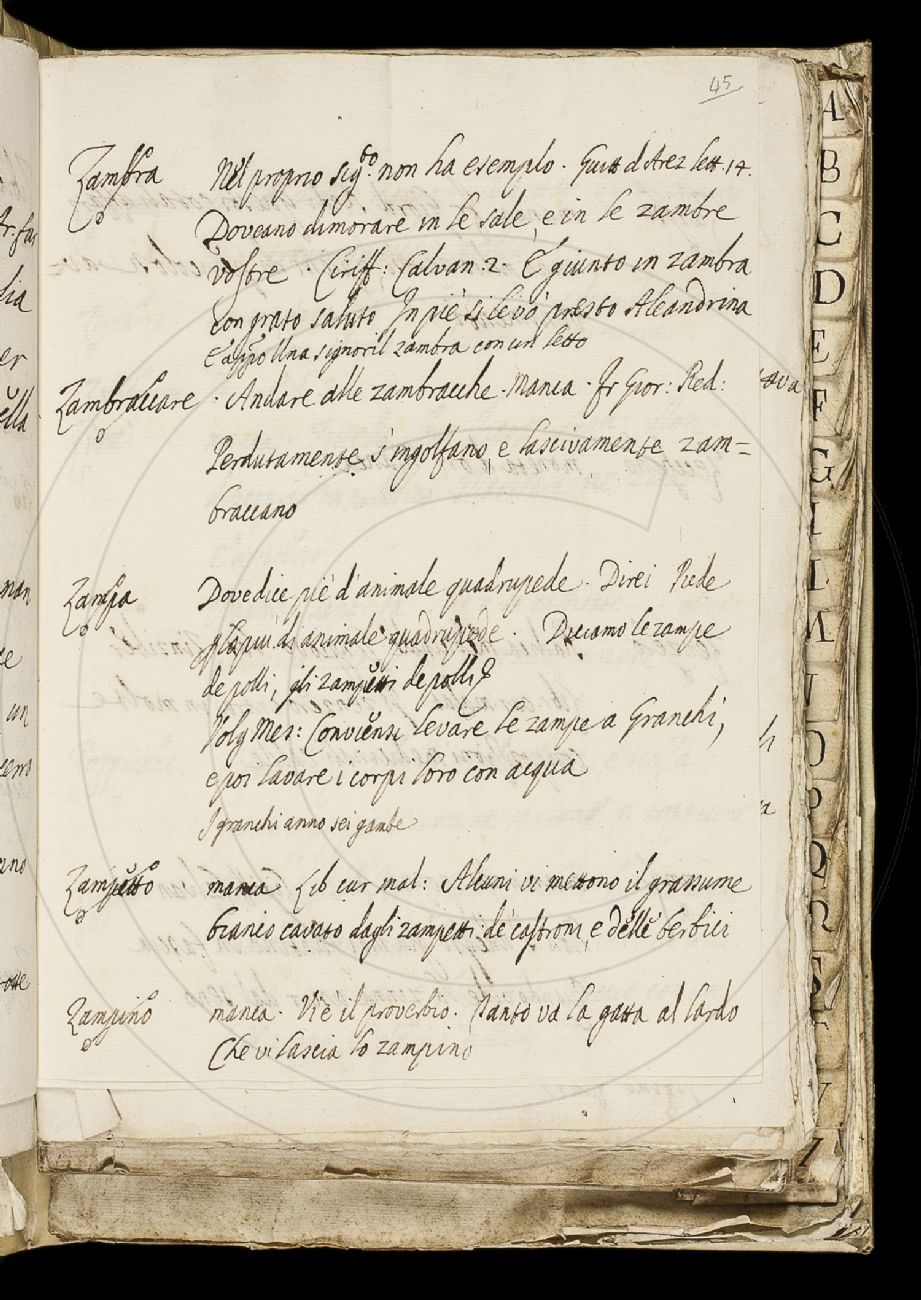 45
Zambra Nel proprio sig.to non ha esempio. Guitt d'Arez lett. 14.
Doveano dimorare in le sale, e in le zambre
vostre. Ciriff: Calvan. 2. E' giunto in zambra
con grato saluto In piè si levò presto Aleandrina
E appo Una signoril zambra con un letto
Zambraccare. Andare alle zambracche. Manca. Fr Gior: Red:
Perdutamente s'ingolfano, e lascivamente zam=
braccano
Zampa Dove dice piè d'animale quadrupede. Direi Piede
p lo più di animale quadrupede. Diciamo le zampe
de polli, gli zampetti de polli
Volg Mes: Conviensi levare le zampe a Granchi,
e poi lavare i corpi loro con acqua
I granchi anno sei gambe
Zampetto manca Lib cur mal: Alcuni vi mettono il grassume
bianco cavato dagli zampetti de' castroni, e delle berbici
Zampino manca. Vi è il proverbio. Tanto va la gatta al lardo
Che vi lascia lo zampino
A
B
C
D
E
F
G
I
L
M
N
O
P
Q
R
S
T
V
Z